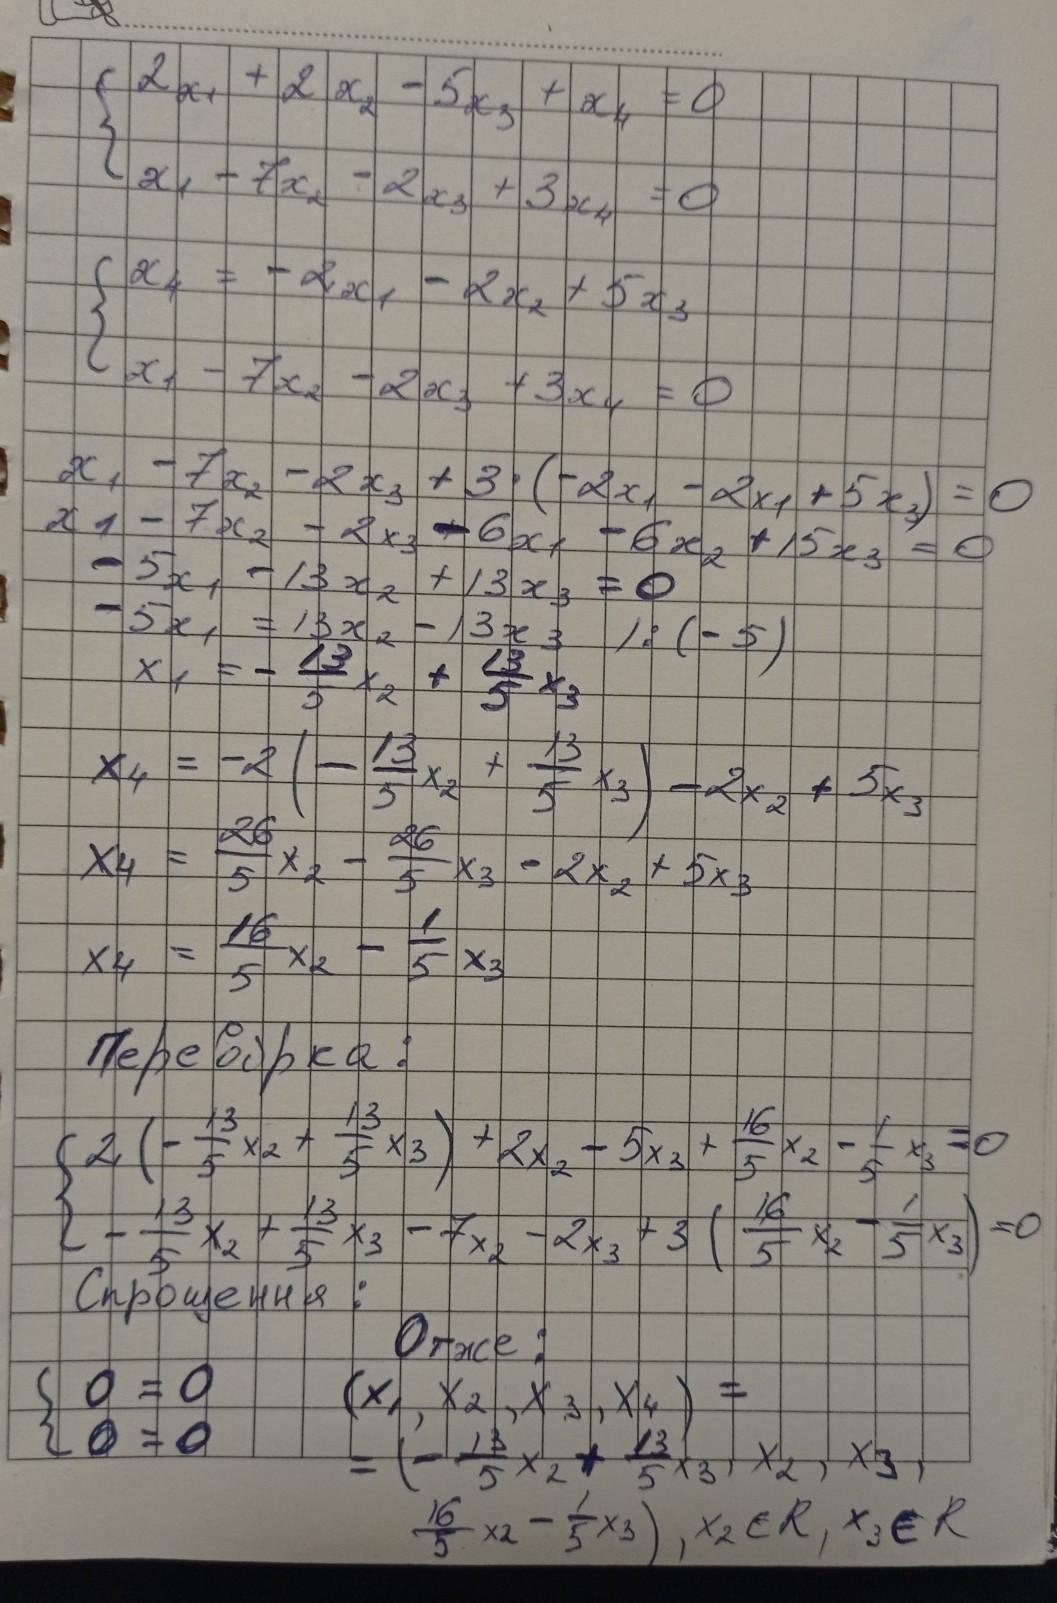 { 2x₁ + 2x₂ - 5x₃ + x₄ = 0
x₁ - 7x₂ - 2x₃ + 3x₄ = 0
{ x₄ = -2x₁ - 2x₂ + 5x₃
x₁ - 7x₂ - 2x₃ + 3x₄ = 0
x₁ - 7x₂ - 2x₃ + 3·(-2x₁ - 2x₁ + 5x₃) = 0
x₁ - 7x₂ - 2x₃ - 6x₁ - 6x₂ + 15x₃ = 0
-5x₁ - 13x₂ + 13x₃ = 0
-5x₁ = 13x₂ - 13x₃ |:(-5)
x₁ = -13/5 x₂ + 13/5 x₃
x₄ = -2(-13/5 x₂ + 13/5 x₃) - 2x₂ + 5x₃
x₄ = 26/5 x₂ - 26/5 x₃ - 2x₂ + 5x₃
x₄ = 16/5 x₂ - 1/5 x₃
Перевірка:
{ 2(-13/5 x₂ + 13/5 x₃) + 2x₂ - 5x₃ + 16/5 x₂ - 1/5 x₃ = 0
-13/5 x₂ + 13/5 x₃ - 7x₂ - 2x₃ + 3(16/5 x₂ - 1/5 x₃) = 0
Спрощення:
{ 0 = 0
0 = 0
Отже:
(x₁, x₂, x₃, x₄) =
= (-13/5 x₂ + 13/5 x₃, x₂, x₃,
16/5 x₂ - 1/5 x₃), x₂ ∈ R, x₃ ∈ R